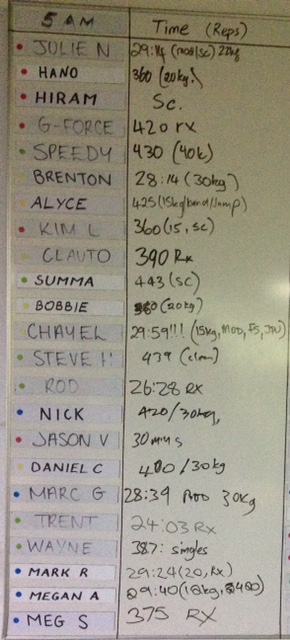 5 AM Time (Reps)
JULIE N 29:14 (mod/sc) 22kg
HANO 360 (20kg)
HIRAM Sc.
G-FORCE 420 rx
SPEEDY 430 (40k)
BRENTON 28:14 (30kg)
ALYCE 425 (15kg/band/jump)
KIM L 360 (15, sc)
CLAUTO 390 Rx
SUMMA 443 (sc)
BOBBIE (20kg)
CHAYEL 29:59!!! (15kg, MOD,
STEVE H 439
ROD 26:28 RX
NICK 420/30kg,
JASON V 30mins
DANIEL C 400/30kg
MARC G 28:39 MOD 30kg
TRENT 24:03 RX
WAYNE 387: singles
MARK R 29:24 (20, Rx)
MEGAN A 29:40
MEG S 375 RX